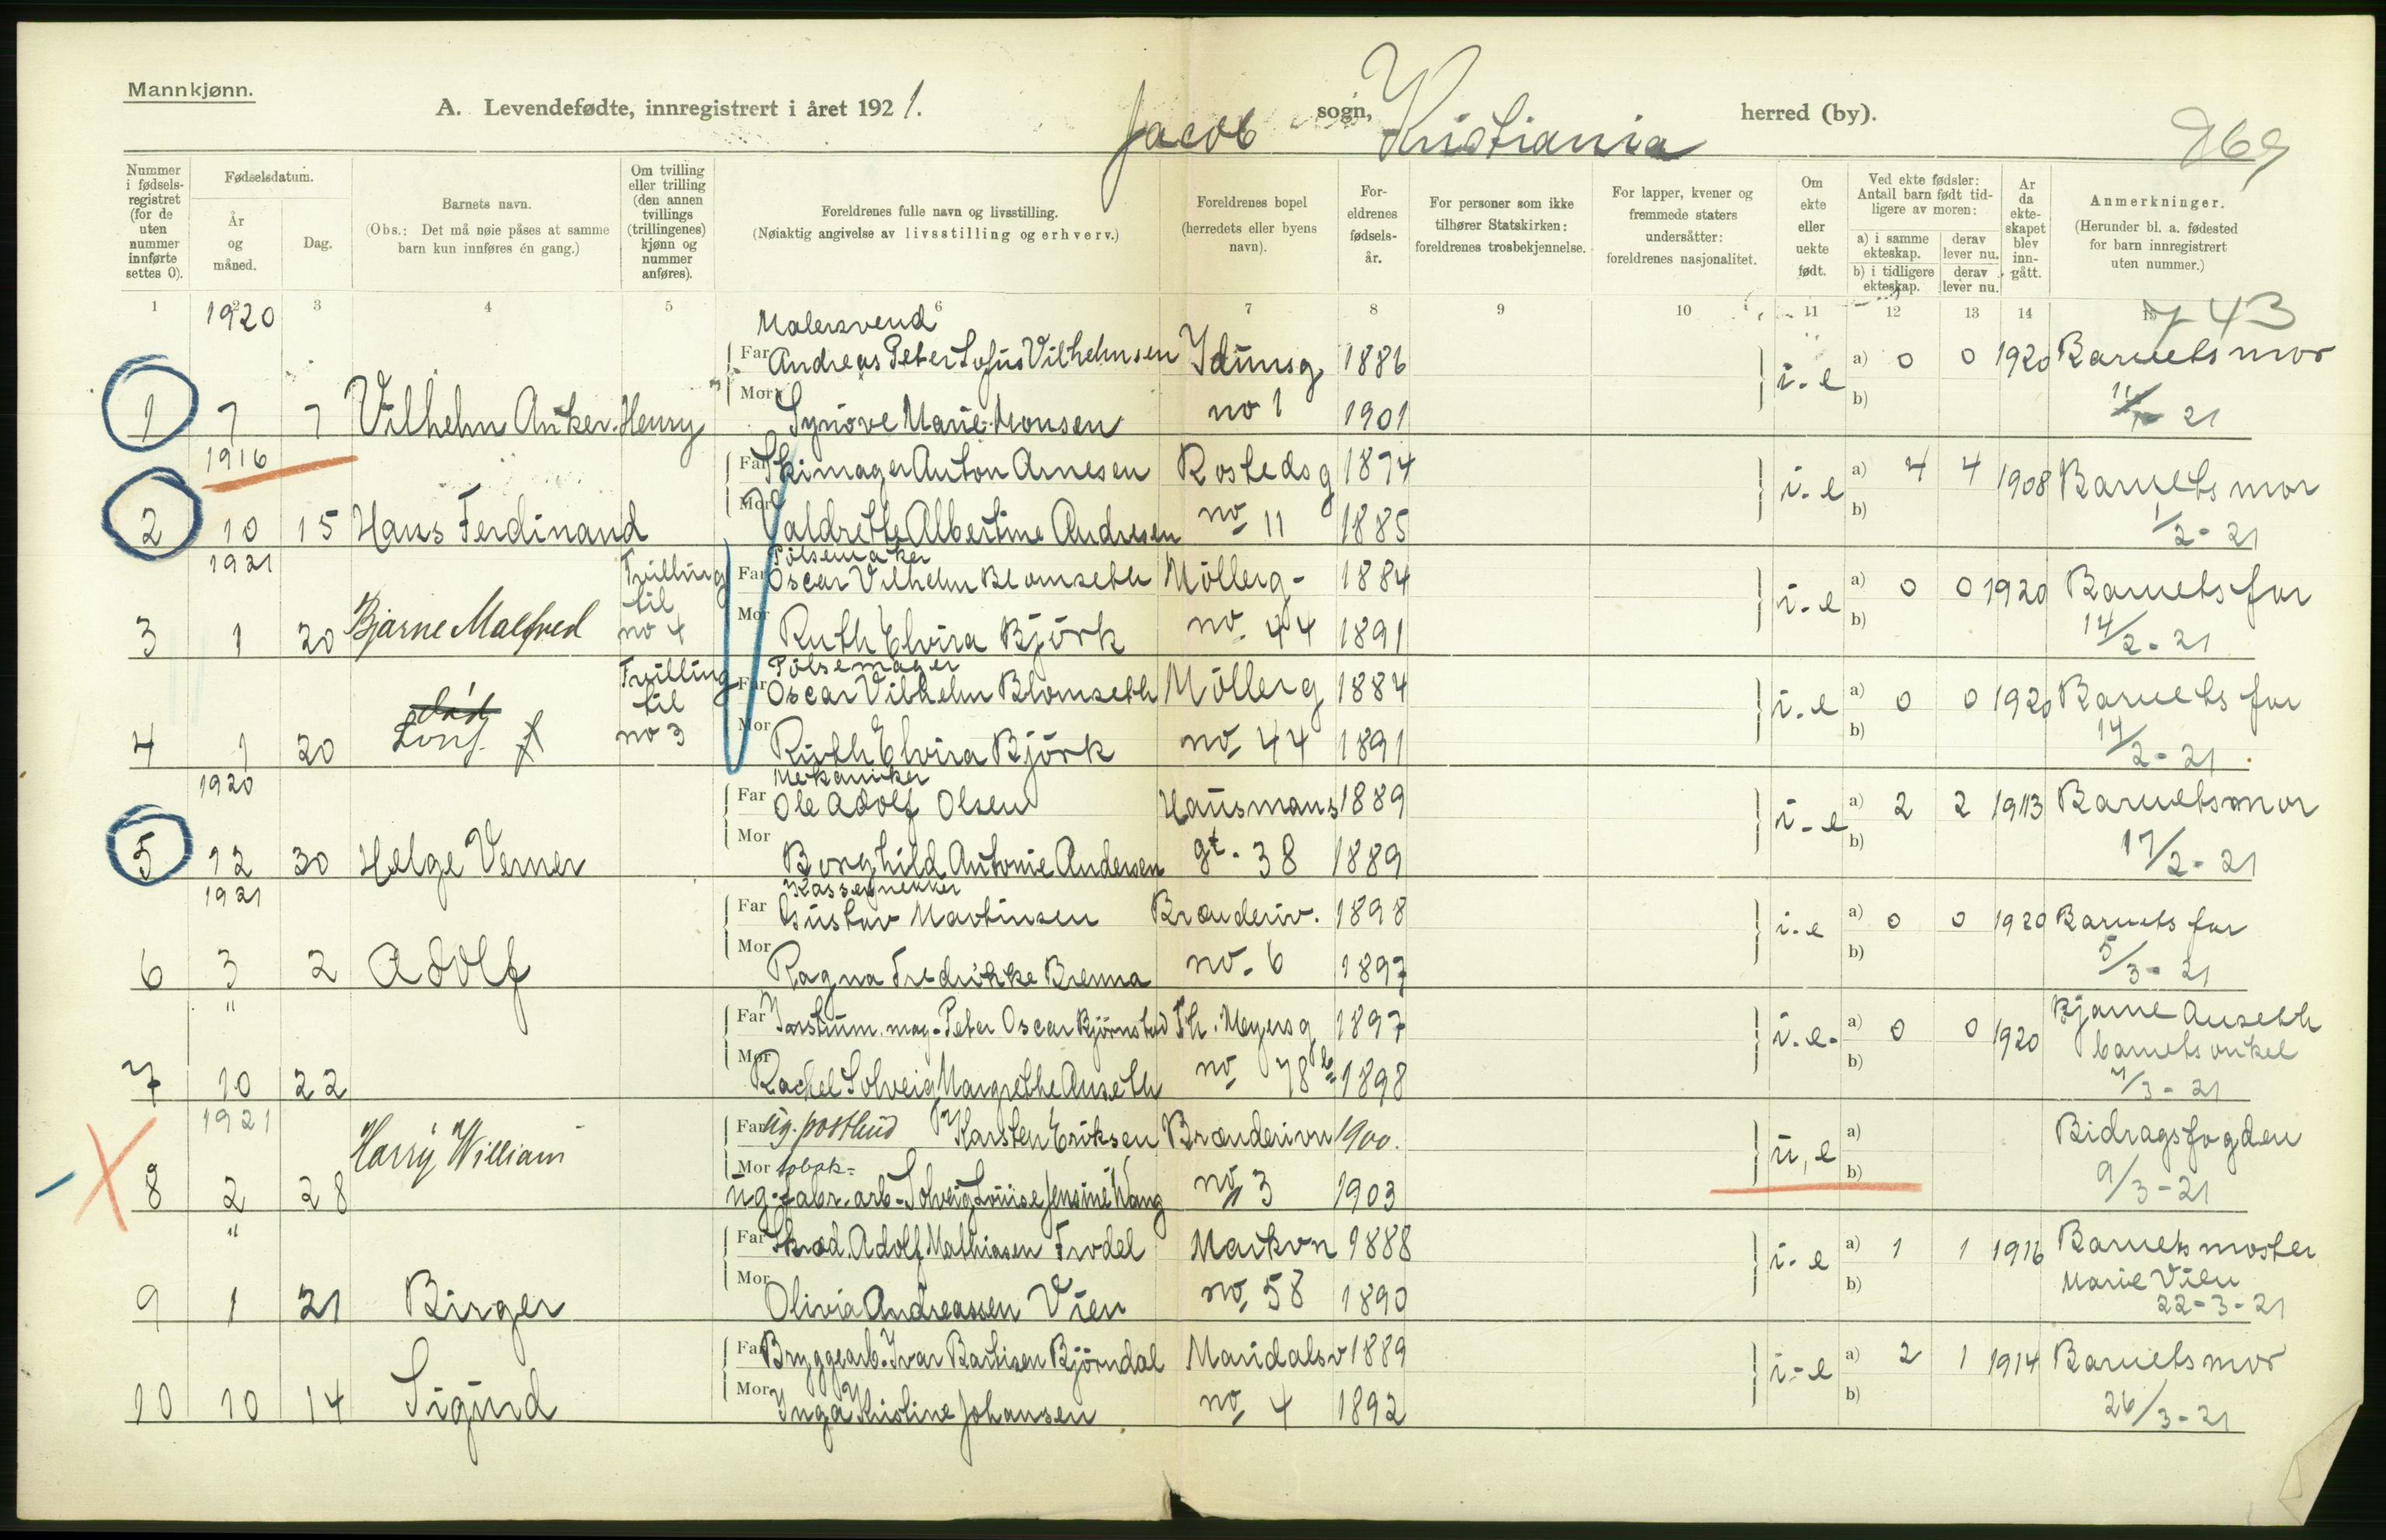 Mannkjønn.
A. Levendefødte, innregistrert i året 1921. Jacob sogn, Kristiania herred (by).
Nummer i fødsels-registret (for de uten nummer innførte settes 0).
Fødselsdatum.
År og måned.
Dag.
Barnets navn.
(Obs.: Det må nøie påses at samme barn kun innføres én gang.)
Om tvilling eller trilling (den annen tvillings (trillingenes) kjønn og nummer anføres).
Foreldrenes fulle navn og livsstilling.
(Nøiaktig angivelse av livsstilling og erhverv.)
Foreldrenes bopel (herredets eller byens navn).
For-eldrenes fødsels-år.
For personer som ikke tilhører Statskirken: foreldrenes trosbekjennelse.
For lapper, kvener og fremmede staters undersåtter: foreldrenes nasjonalitet.
Om ekte eller uekte født.
Ved ekte fødsler: Antall barn født tid-ligere av moren:
a) i samme ekteskap. derav lever nu.
b) i tidligere ekteskap. derav lever nu.
År da ekte-skapet blev inn-gått.
Anmerkninger.
(Herunder bl. a. fødested for barn innregistrert uten nummer.)
1 2 3 4 5 6 7 8 9 10 11 12 13 14
43
1920
Malersvend
Far Andreas Peter Sofus Vilhelmsen Idunsg 1886 i.e a) 0 0 1920 Barnets mor
1 7 7 Vilhelm Anker Henry Mor Synöve Marie Monsen no 1 1901 b) 21
1916
Far Skimager Anton Arnesen Rostedsg 1874 i.e a) 4 4 1908 Barnets mor
2 10 15 Hans Ferdinand Mor Valdrette Albertine Andresen no 11 1885 b) 1/2-21
1921
Tvilling til no 4
Pölsemaker
Far Oscar Vilhelm Blomseth Möllerg- 1884 i.e a) 0 0 1920 Barnets far
3 1 20 Bjarne Malfred Mor Ruth Elvira Björk no 44 1891 b) 14/2-21
Tvilling til no 3
Pölsemager
Far Oscar Vilhelm Blomseth Möllerg 1884 i.e a) 0 0 1920 Barnets far
4 1 20 Mor Ruth Elvira Björk no 44 1891 b) 14/2-21
1920
Mekaniker
Far Ole Adolf Olsen Hausmans 1889 i-e a) 2 2 1913 Barnets mor
5 12 30 Helge Verner Mor Borghild Antonie Andersen gt. 38 1889 b) 17/2-21
1921
Kassesnekker
Far Gustav Martinsen Brænderiv. 1898 i.e a) 0 0 1920 Barnets far
6 3 2 Adolf Mor Ragna Fredrikke Brenna no. 6 1897 b) 5/3-21
"
Far Instrum. mag. Peter Oscar Björnstad Th. Meyersg 1897 i.e. a) 0 0 1920 Bjarne Anseth
barnets onkel
7 10 22 Mor Rachel Solveig Margrethe Anseth no 78 b 1898 b) 7/3-21
1921
Far ug. postbud Karsten Eriksen Brænderivn 1900. u,e a) Bidragsfogden
8 2 28 Harry William Mor tobak- ug. fabr. arb. Solveig Louise Jensine Wang no 3 1903 b) 9/3-21
"
Far Skræd. Adolf Mathiasen Trodel Markvn 1888 i-e a) 1 1 1916 Barnets moster
Marie Vien
9 1 21 Birger Mor Olivia Andreassen Vien no. 58 1890 b) 22-3-21
Far Bryggearb. Ivar Bartisen Björndal Maridalsv 1889 i-e a) 2 1 1914 Barnets mor
10 10 14 Sigurd Mor Inga Kristine Johansen no 4 1892 b) 26/3-21